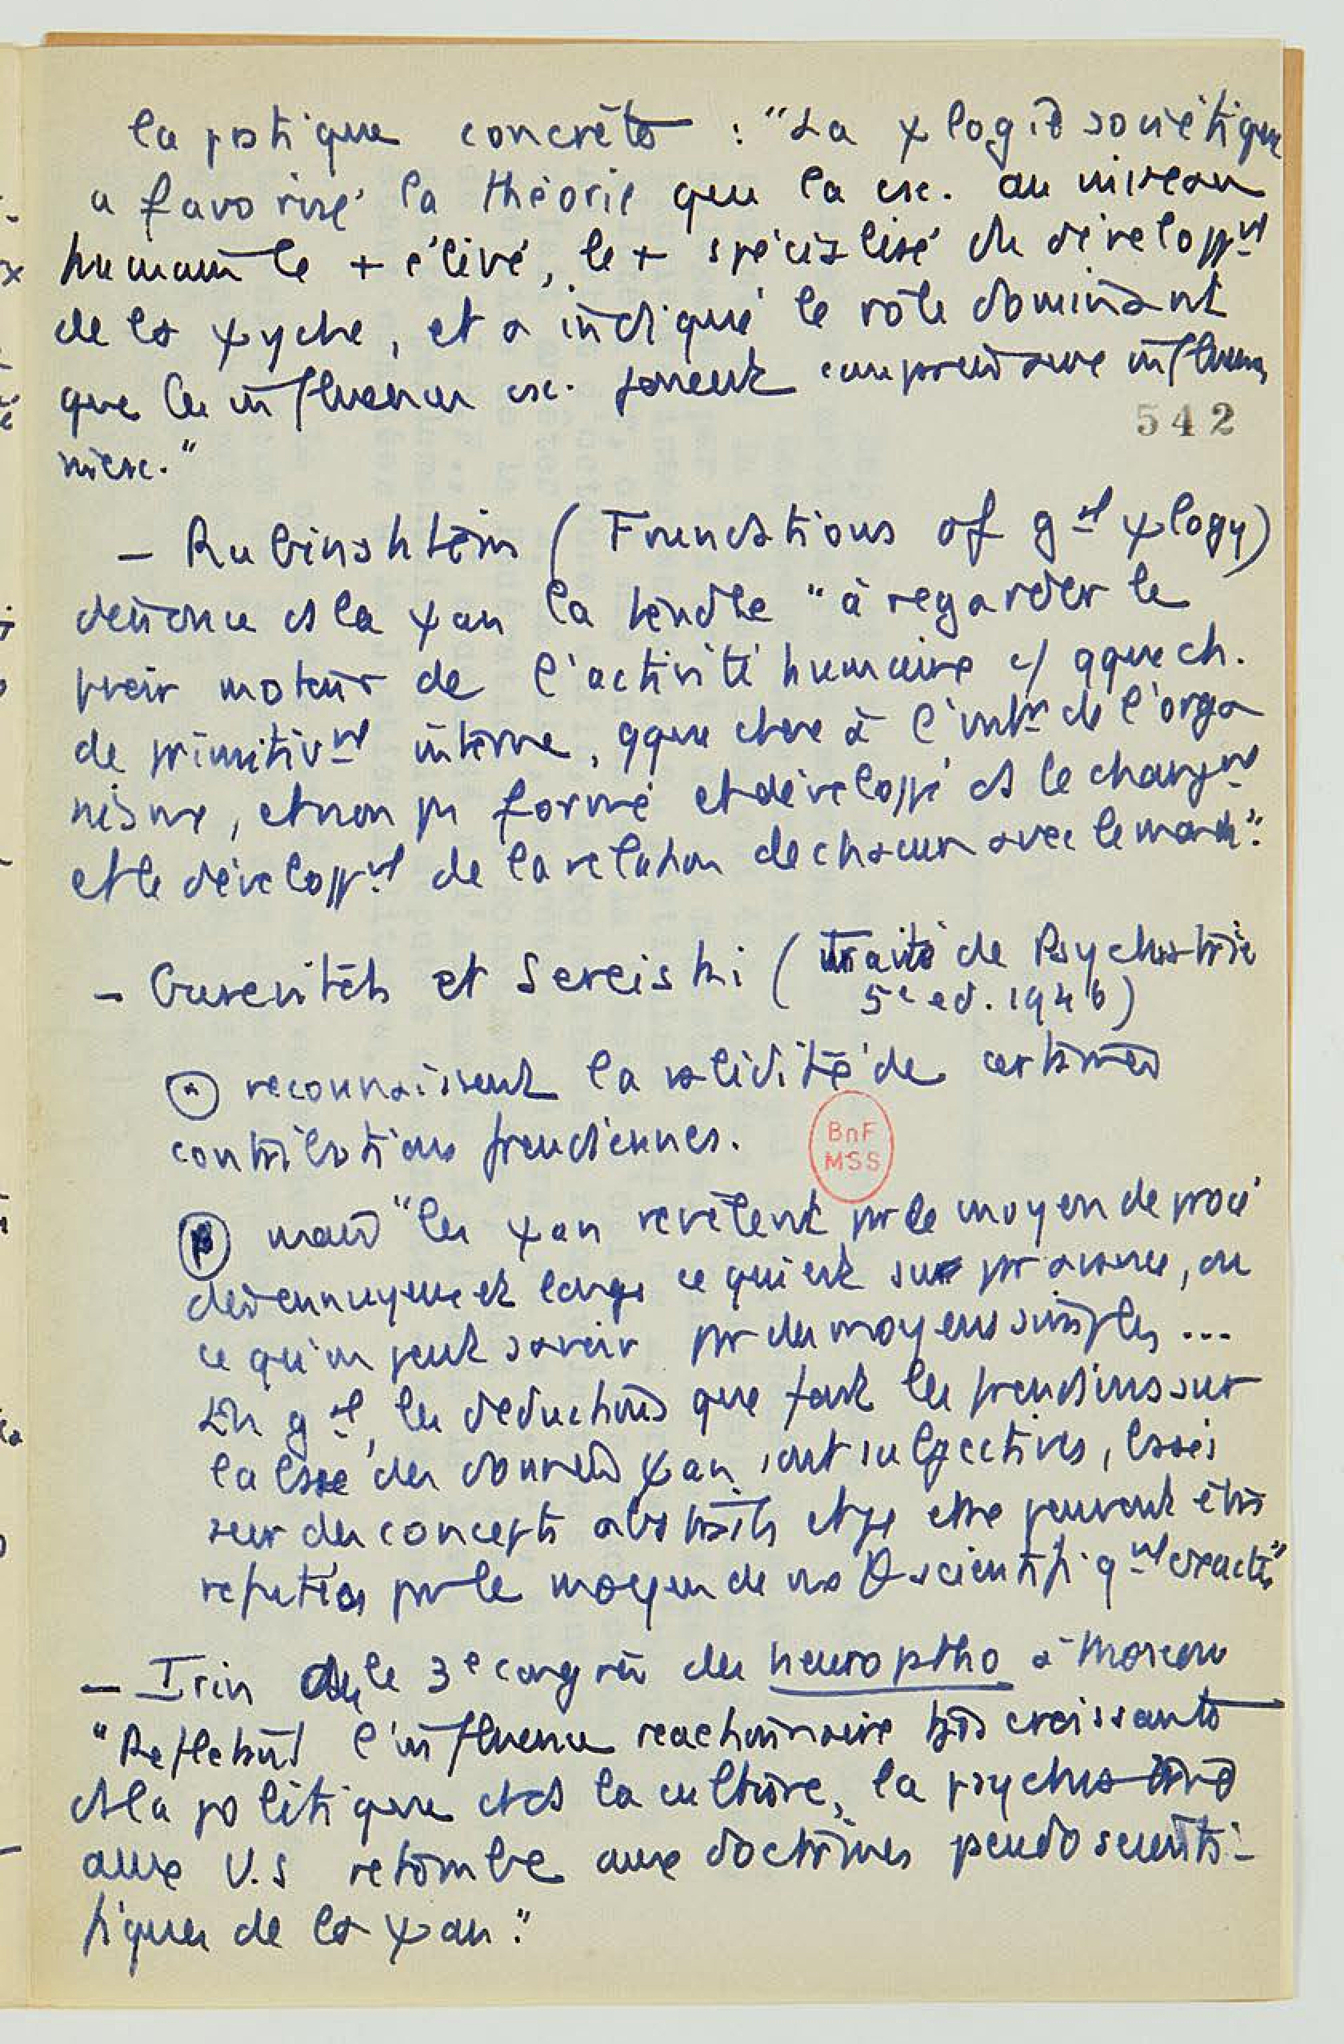 la pratique concrète : "La ψlogie soviétique
a favorisé la théorie que la csc. au niveau
humain le + élevé, le + spécialisé du développt
de la ψyche, et a indiqué le rôle dominant
que les influences csc. jouent comprend aux influences
542
incsc."
– Rubinshtein (Foundations of gal ψlogy)
dénonce ds la ψan la tendce "à regarder le
pvoir moteur de l'activité humaine c/ qque ch.
de primitivt interne, qque chose à l'intr de l'orga
nisme, et non pas formé et développé ds le changt
et le développt de la relation de chacun avec le monde".
– Gurevitch et Sereiski (traité de Psychiatrie
5e ed. 1946)
α reconnaissent la validité de certaines
contributions freudiennes.
β mais "les ψan revèlent par le moyen de procé
dés ennuyeux et longs ce qui est su par avance, ou
ce qu'on peut savoir par des moyens simples ...
En gal, les déductions que font les freudiens sur
la base des données ψan sont subjectives, basées
sur des concepts abstraits et peuvent être
réfutées par le moyen de nos scientifiqt exactes"
– Irin ds le 3e congrès des neuropatho à Moscou
"Reflétant l'influence réactionnaire très croissante
ds la politique et ds la culture, la psychiatrie
aux U.S retombe aux doctrines pseudo scienti-
fiques de la ψan".
BnF
MSS